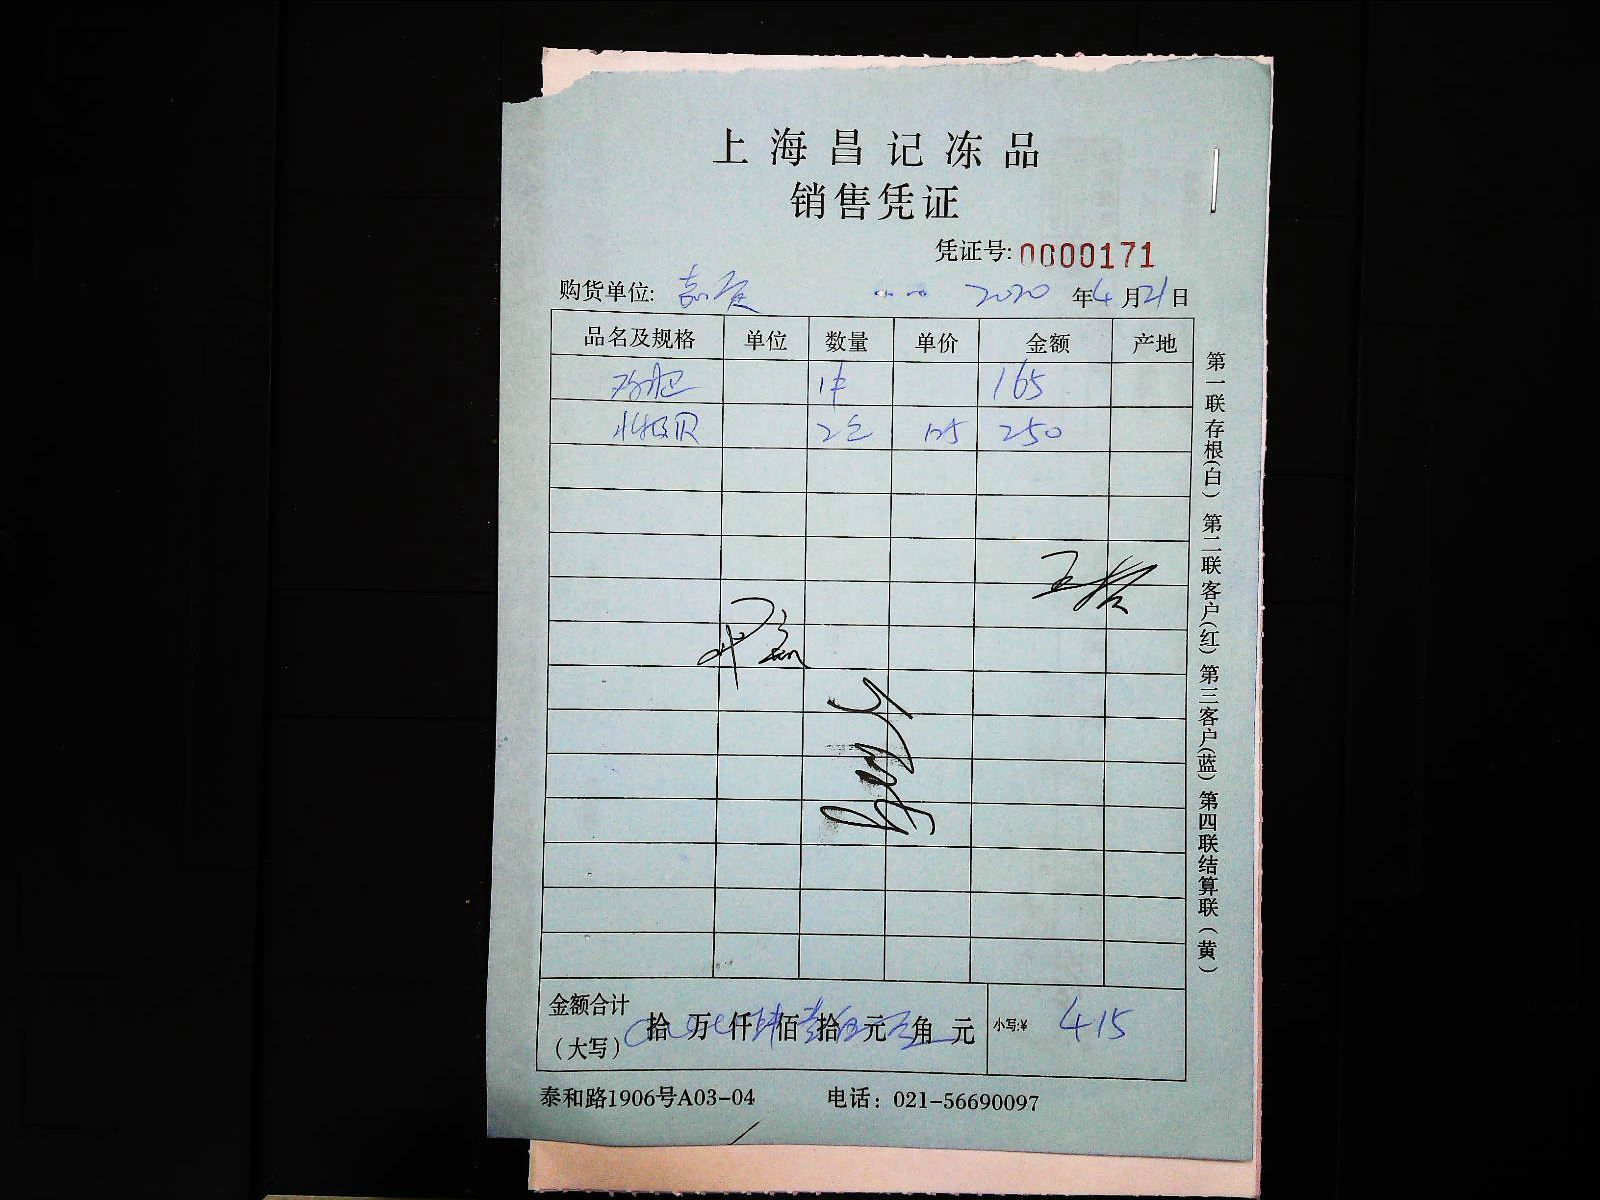 上海昌记冻品
销售凭证
凭证号: 0000171
购货单位: 2020 年 4 月 21 日
品名及规格 单位 数量 单价 金额 产地
1件 165
北极贝 2包 125 250
金额合计（大写） 拾 万 仟 肆 佰 壹 拾 伍 元 角 元 小写:¥ 415
泰和路1906号A03-04 电话：021-56690097
第一联存根(白) 第二联客户(红) 第三客户(蓝) 第四联结算联(黄)